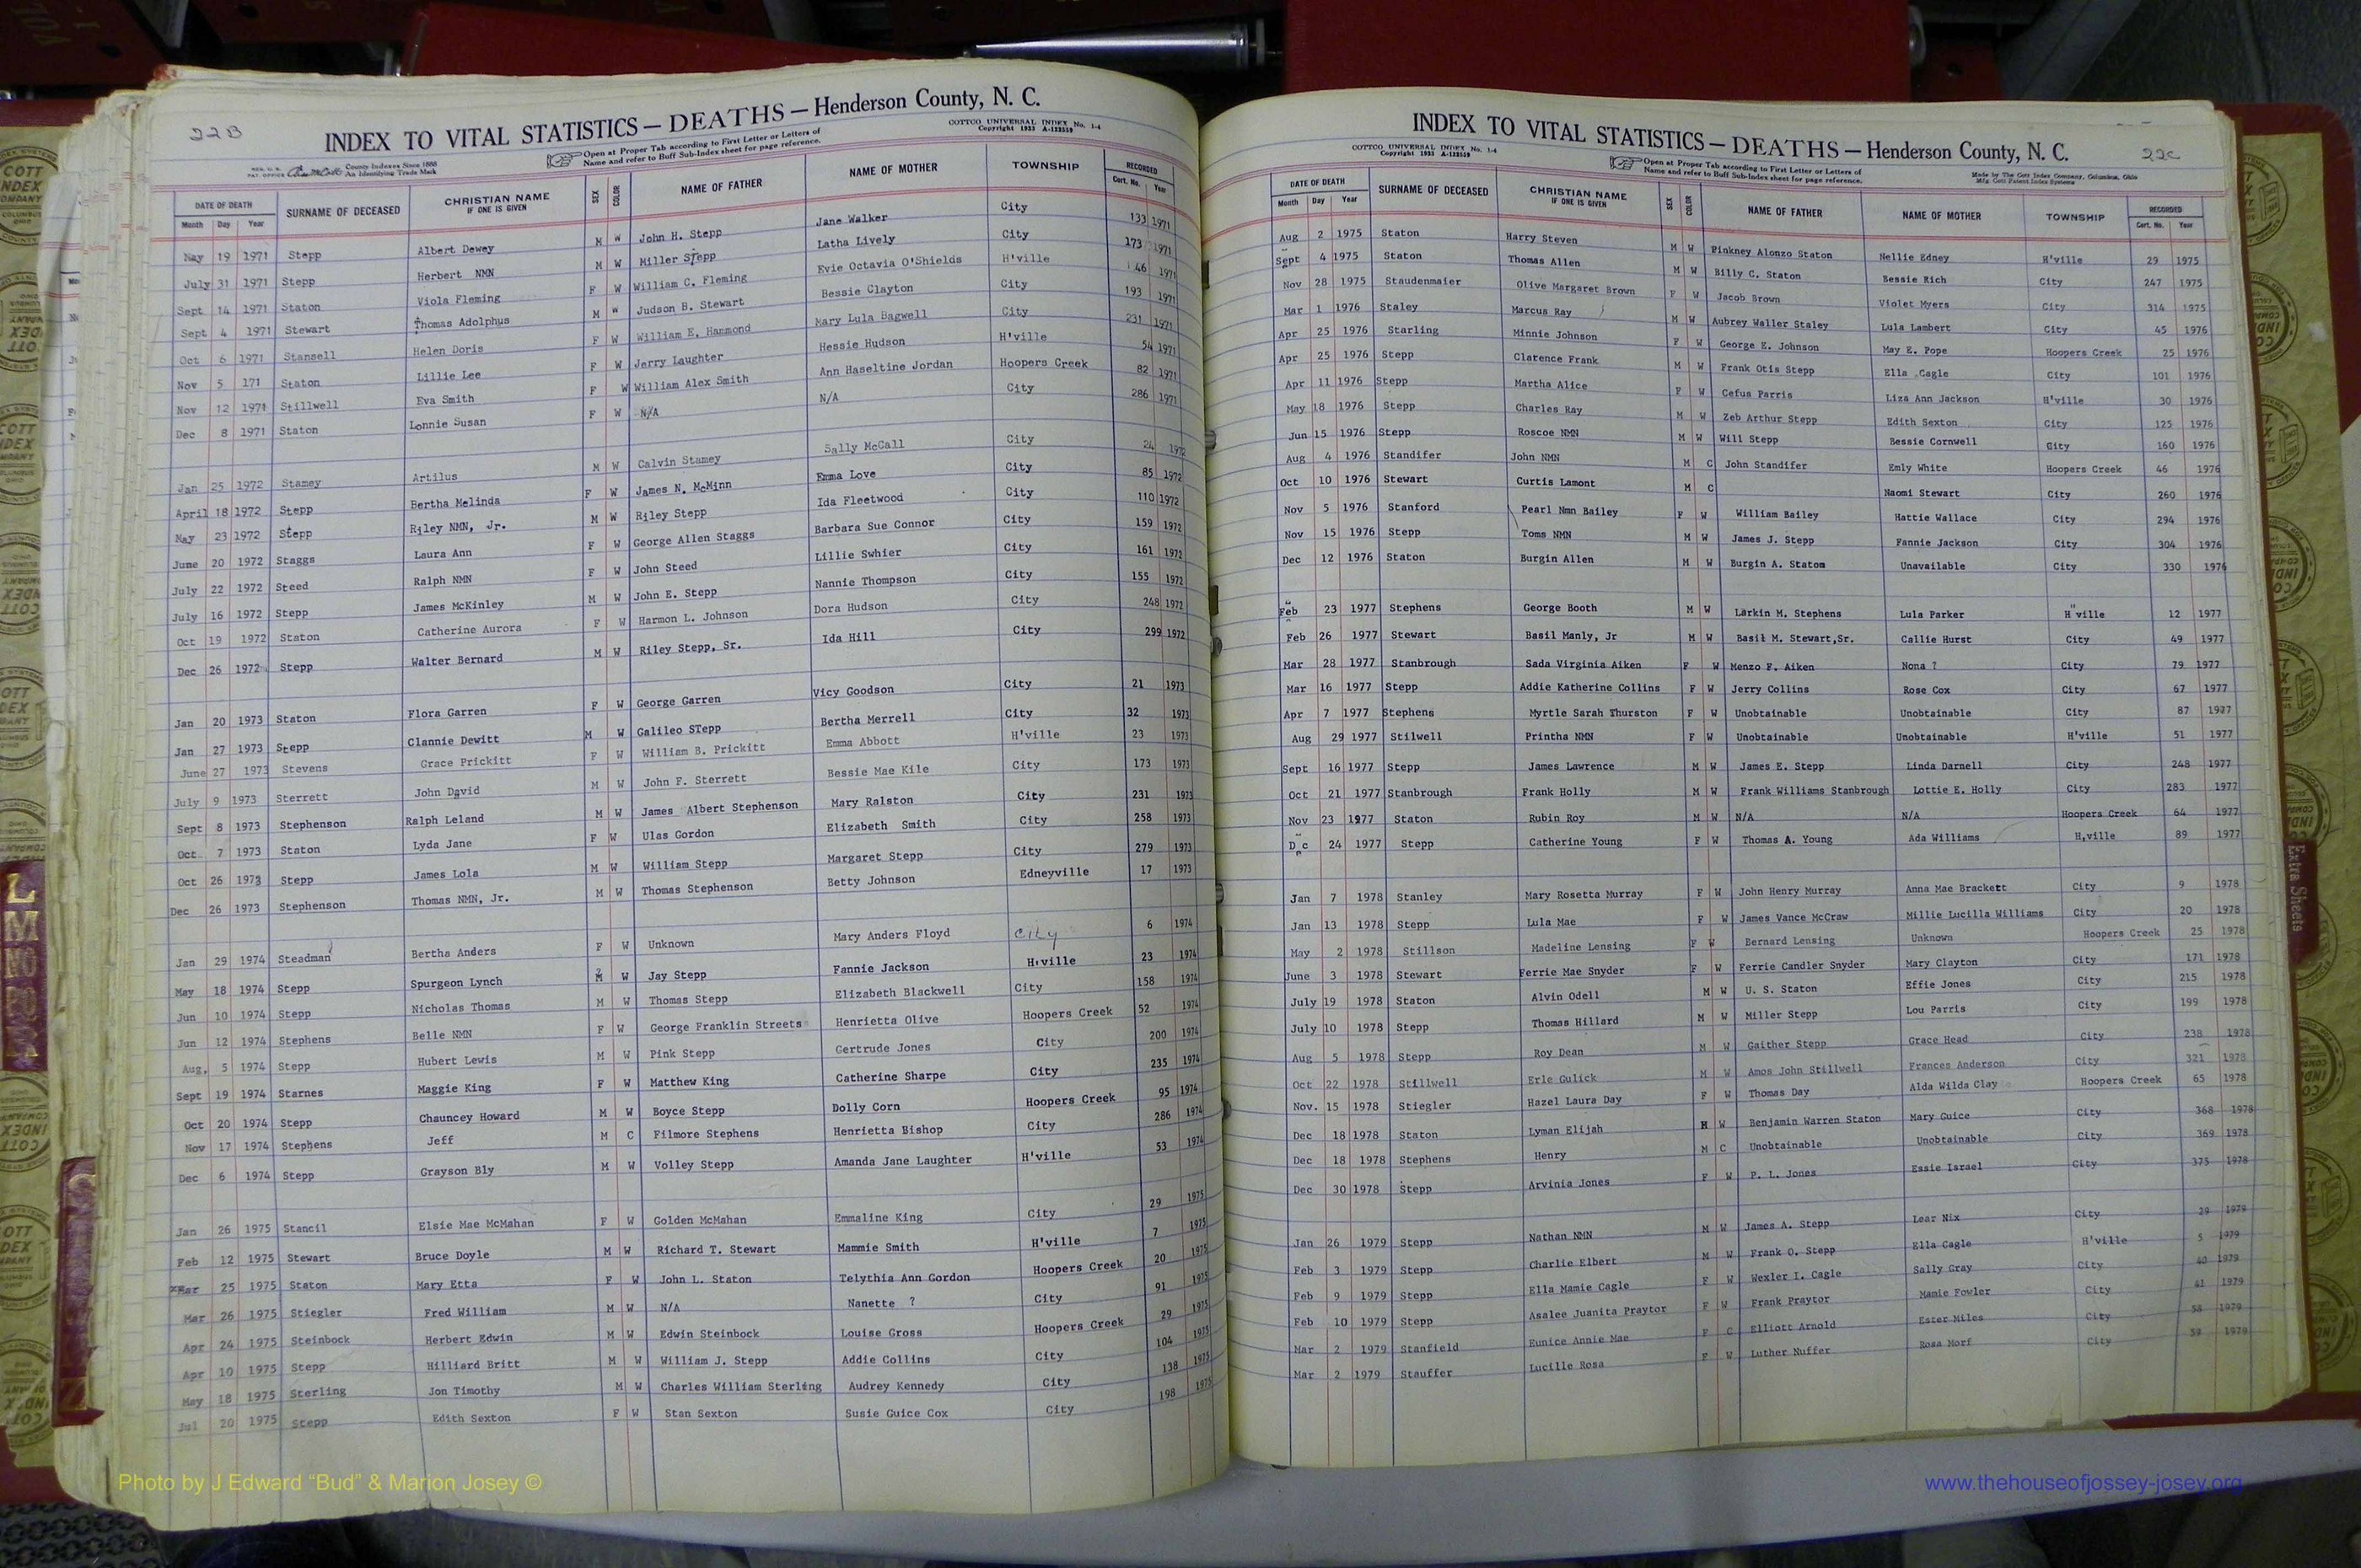 22B
INDEX TO VITAL STATISTICS — DEATHS — Henderson County, N. C.
COTTCO UNIVERSAL INDEX No. 1-4
Copyright 1933 A-123559
County Indexes Since 1888
An Identifying Trade Mark
Open at Proper Tab according to First Letter or Letters of
Name and refer to Buff Sub-Index sheet for page reference.
DATE OF DEATH SURNAME OF DECEASED CHRISTIAN NAME IF ONE IS GIVEN SEX COLOR NAME OF FATHER NAME OF MOTHER TOWNSHIP RECORDED
Month Day Year Cert. No. Year
May 19 1971 Stepp Albert Dewey M W John H. Stepp Jane Walker City 133 1971
July 31 1971 Stepp Herbert NMN M W Miller Stepp Latha Lively City 173 1971
Sept 14 1971 Staton Viola Fleming F W William C. Fleming Evie Octavia O'Shields H'ville 46 1971
Sept 4 1971 Stewart Thomas Adolphus M W Judson B. Stewart Bessie Clayton City 193 1971
Oct 6 1971 Stansell Helen Doris F W William E. Hammond Mary Lula Bagwell City 231 1971
Nov 5 171 Staton Lillie Lee F W Jerry Laughter Hessie Hudson H'ville 54 1971
Nov 12 1971 Stillwell Eva Smith F W William Alex Smith Ann Haseltine Jordan Hoopers Creek 82 1971
Dec 8 1971 Staton Lonnie Susan F W N/A N/A City 286 1971
Jan 25 1972 Stamey Artilus M W Calvin Stamey Sally McCall City 24 1972
April 18 1972 Stepp Bertha Melinda F W James N. McMinn Emma Love City 85 1972
May 23 1972 Stepp Riley NMN, Jr. M W Riley Stepp Ida Fleetwood City 110 1972
June 20 1972 Staggs Laura Ann F W George Allen Staggs Barbara Sue Connor City 159 1972
July 22 1972 Steed Ralph NMN F W John Steed Lillie Swhier City 161 1972
July 16 1972 Stepp James McKinley M W John E. Stepp Nannie Thompson City 155 1972
Oct 19 1972 Staton Catherine Aurora F W Harmon L. Johnson Dora Hudson City 248 1972
Dec 26 1972 Stepp Walter Bernard M W Riley Stepp, Sr. Ida Hill City 299 1972
Jan 20 1973 Staton Flora Garren F W George Garren Vicy Goodson City 21 1973
Jan 27 1973 Stepp Clannie Dewitt M W Galileo STepp Bertha Merrell City 32 1973
June 27 1973 Stevens Grace Prickitt F W William B. Prickitt Emma Abbott H'ville 23 1973
July 9 1973 Sterrett John David M W John F. Sterrett Bessie Mae Kile City 173 1973
Sept 8 1973 Stephenson Ralph Leland M W James Albert Stephenson Mary Ralston City 231 1973
Oct 7 1973 Staton Lyda Jane F W Ulas Gordon Elizabeth Smith City 258 1973
Oct 26 1973 Stepp James Lola M W William Stepp Margaret Stepp City 279 1973
Dec 26 1973 Stephenson Thomas NMN, Jr. M W Thomas Stephenson Betty Johnson Edneyville 17 1973
Jan 29 1974 Steadman Bertha Anders F W Unknown Mary Anders Floyd City 6 1974
May 18 1974 Stepp Spurgeon Lynch M W Jay Stepp Fannie Jackson H'ville 23 1974
Jun 10 1974 Stepp Nicholas Thomas M W Thomas Stepp Elizabeth Blackwell City 158 1974
Jun 12 1974 Stephens Belle NMN F W George Franklin Streets Henrietta Olive Hoopers Creek 52 1974
Aug. 5 1974 Stepp Hubert Lewis M W Pink Stepp Gertrude Jones City 200 1974
Sept 19 1974 Starnes Maggie King F W Matthew King Catherine Sharpe City 235 1974
Oct 20 1974 Stepp Chauncey Howard M W Boyce Stepp Dolly Corn Hoopers Creek 95 1974
Nov 17 1974 Stephens Jeff M C Filmore Stephens Henrietta Bishop City 286 1974
Dec 6 1974 Stepp Grayson Bly M W Volley Stepp Amanda Jane Laughter H'ville 53 1974
Jan 26 1975 Stancil Elsie Mae McMahan F W Golden McMahan Emmaline King City 29 1975
Feb 12 1975 Stewart Bruce Doyle M W Richard T. Stewart Mammie Smith H'ville 7 1975
Mar 25 1975 Staton Mary Etta F W John L. Staton Telythia Ann Gordon Hoopers Creek 20 1975
Mar 26 1975 Stiegler Fred William M W N/A Nanette ? City 91 1975
Apr 24 1975 Steinbock Herbert Edwin M W Edwin Steinbock Louise Gross Hoopers Creek 29 1975
Apr 10 1975 Stepp Hilliard Britt M W William J. Stepp Addie Collins City 104 1975
May 18 1975 Sterling Jon Timothy M W Charles William Sterling Audrey Kennedy City 138 1975
Jul 20 1975 Stepp Edith Sexton F W Stan Sexton Susie Guice Cox City 198 1975
INDEX TO VITAL STATISTICS — DEATHS — Henderson County, N. C.
22c
COTTCO UNIVERSAL INDEX No. 1-4
Copyright 1933 A-123559
Open at Proper Tab according to First Letter or Letters of
Name and refer to Buff Sub-Index sheet for page reference.
Made by The Cott Index Company, Columbus, Ohio
Mfg. Cott Patent Index Systems
DATE OF DEATH SURNAME OF DECEASED CHRISTIAN NAME IF ONE IS GIVEN SEX COLOR NAME OF FATHER NAME OF MOTHER TOWNSHIP RECORDED
Month Day Year Cert. No. Year
Aug 2 1975 Staton Harry Steven M W Pinkney Alonzo Staton Nellie Edney H'ville 29 1975
Sept 4 1975 Staton Thomas Allen M W Billy C. Staton Bessie Rich City 247 1975
Nov 28 1975 Staudenmaier Olive Margaret Brown F W Jacob Brown Violet Myers City 314 1975
Mar 1 1976 Staley Marcus Ray M W Aubrey Waller Staley Lula Lambert City 45 1976
Apr 25 1976 Starling Minnie Johnson F W George E. Johnson May E. Pope Hoopers Creek 25 1976
Apr 25 1976 Stepp Clarence Frank M W Frank Otis Stepp Ella Cagle City 101 1976
Apr 11 1976 Stepp Martha Alice F W Cefus Parris Liza Ann Jackson H'ville 30 1976
May 18 1976 Stepp Charles Ray M W Zeb Arthur Stepp Edith Sexton City 125 1976
Jun 15 1976 Stepp Roscoe NMN M W Will Stepp Bessie Cornwell City 160 1976
Aug 4 1976 Standifer John NMN M C John Standifer Emly White Hoopers Creek 46 1976
Oct 10 1976 Stewart Curtis Lamont M C Naomi Stewart City 260 1976
Nov 5 1976 Stanford Pearl Nmn Bailey F W William Bailey Hattie Wallace City 294 1976
Nov 15 1976 Stepp Toms NMN M W James J. Stepp Fannie Jackson City 304 1976
Dec 12 1976 Staton Burgin Allen M W Burgin A. Staton Unavailable City 330 1976
Feb 23 1977 Stephens George Booth M W Larkin M. Stephens Lula Parker H"ville 12 1977
Feb 26 1977 Stewart Basil Manly, Jr M W Basil M. Stewart,Sr. Callie Hurst City 49 1977
Mar 28 1977 Stanbrough Sada Virginia Aiken F W Menzo F. Aiken Nona ? City 79 1977
Mar 16 1977 Stepp Addie Katherine Collins F W Jerry Collins Rose Cox City 67 1977
Apr 7 1977 Stephens Myrtle Sarah Thurston F W Unobtainable Unobtainable City 87 1977
Aug 29 1977 Stilwell Printha NMN F W Unobtainable Unobtainable H'ville 51 1977
Sept 16 1977 Stepp James Lawrence M W James E. Stepp Linda Darnell City 248 1977
Oct 21 1977 Stanbrough Frank Holly M W Frank Williams Stanbrough Lottie E. Holly City 283 1977
Nov 23 1977 Staton Rubin Roy M W N/A N/A Hoopers Creek 64 1977
Dec 24 1977 Stepp Catherine Young F W Thomas A. Young Ada Williams H,ville 89 1977
Jan 7 1978 Stanley Mary Rosetta Murray F W John Henry Murray Anna Mae Brackett City 9 1978
Jan 13 1978 Stepp Lula Mae F W James Vance McCraw Millie Lucilla Williams City 20 1978
May 2 1978 Stillson Madeline Lensing F W Bernard Lensing Unknown Hoopers Creek 25 1978
June 3 1978 Stewart Ferrie Mae Snyder F W Ferrie Candler Snyder Mary Clayton City 171 1978
July 19 1978 Staton Alvin Odell M W U. S. Staton Effie Jones City 215 1978
July 10 1978 Stepp Thomas Hillard M W Miller Stepp Lou Parris City 199 1978
Aug 5 1978 Stepp Roy Dean M W Gaither Stepp Grace Head City 238 1978
Oct 22 1978 Stillwell Erle Gulick M W Amos John Stillwell Frances Anderson City 321 1978
Nov. 15 1978 Stiegler Hazel Laura Day F W Thomas Day Alda Wilda Clay Hoopers Creek 65 1978
Dec 18 1978 Staton Lyman Elijah M W Benjamin Warren Staton Mary Guice City 368 1978
Dec 18 1978 Stephens Henry M C Unobtainable Unobtainable City 369 1978
Dec 30 1978 Stepp Arvinia Jones F W P. L. Jones Essie Israel City 375 1978
Jan 26 1979 Stepp Nathan NMN M W James A. Stepp Lear Nix City 29 1979
Feb 3 1979 Stepp Charlie Elbert M W Frank O. Stepp Ella Cagle H'ville 5 1979
Feb 9 1979 Stepp Ella Mamie Cagle F W Wexler I. Cagle Sally Gray City 40 1979
Feb 10 1979 Stepp Asalee Juanita Praytor F W Frank Praytor Mamie Fowler City 41 1979
Mar 2 1979 Stanfield Eunice Annie Mae F C Elliott Arnold Ester Miles City 58 1979
Mar 2 1979 Stauffer Lucille Rosa F W Luther Nuffer Rosa Morf City 59 1979
Extra Sheets
Photo by J Edward “Bud” & Marion Josey ©
www.thehouseofjossey-josey.org